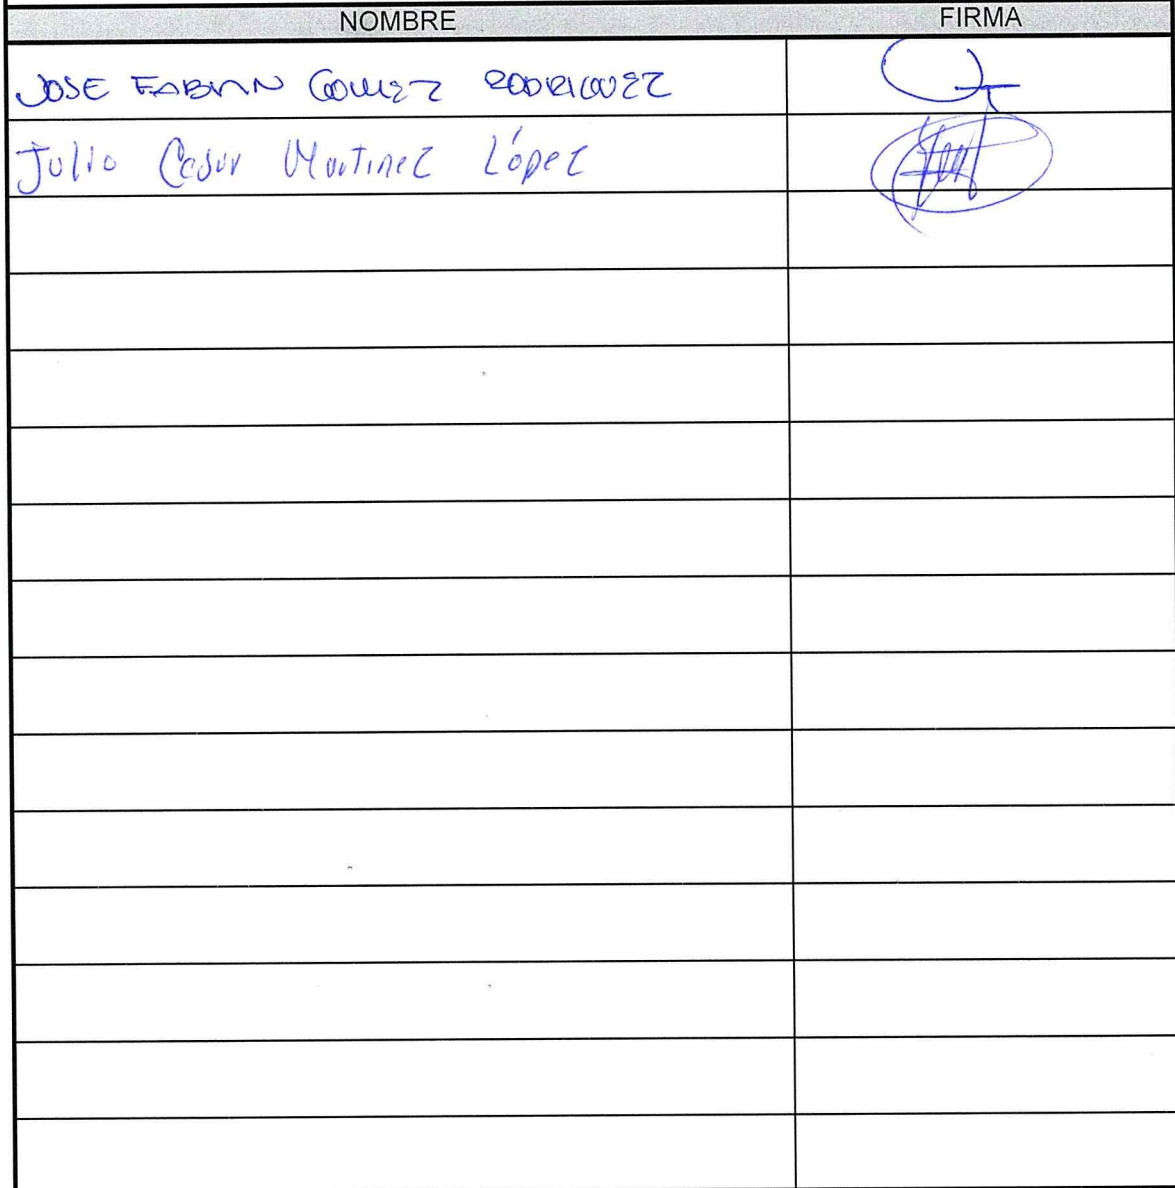 NOMBRE FIRMA
JOSE FABIAN GOMEZ RODRIGUEZ
Julio Cesar Martinez López